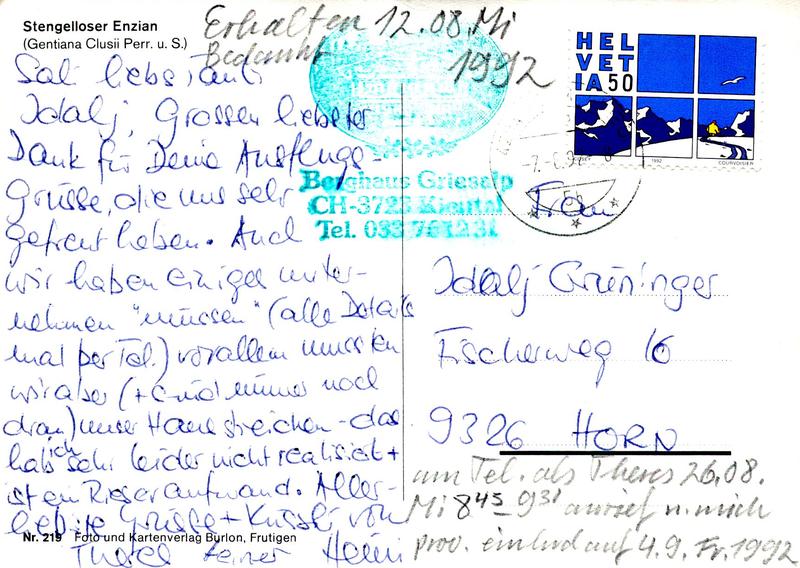 Stengelloser Enzian
(Gentiana Clusii Perr. u. S.)
Erhalten 12.08. Mi
Bedankt 1992
HEL
VET
IA 50
1992
COURVOISIER
Berghaus Griesalp
CH-3723 Kiental
Tel. 033 76 12 31
Sali liebs Tanti
Idalj, Grossen liebster
Dank für Deine Ausflugs-
Grüsse, die uns sehr
gefreut haben. Auch
wir haben einiges unter-
nehmen "müssen" (alle Details
mal per Tel.) vorallem mussten
wir aber (+ sind immer noch
dran) unser Haus streichen - das
hab ich sehr leider nicht realisiert +
ist ein Riesenaufwand. Aller-
liebste Grüsse + Küssli von
Theres Heini
Frau
Idalj Grüninger
Fischerweg 16
9326 HORN
am Tel. als Theres 26.08.
Mi 8 45 - 9 31 anrief u. mich
prov. einlud auf 4.9. Fr. 1992
Nr. 219 Foto und Kartenverlag Burlon, Frutigen